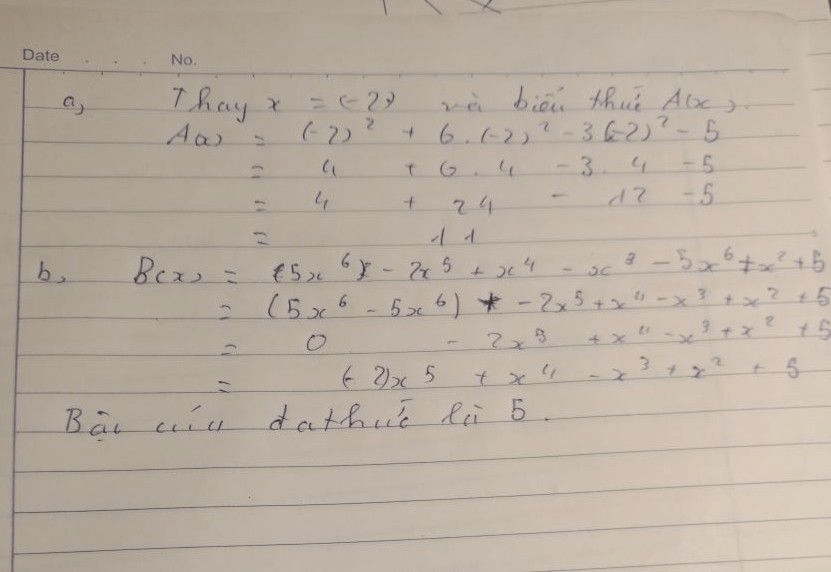 Date . . . No.
a, Thay x = (-2) và biểu thức A(x).
A(x) = (-2)² + 6.(-2)² - 3(-2)² - 5
= 4 + 6.4 - 3.4 - 5
= 4 + 24 - 12 - 5
= 11
b, B(x) = (5x⁶) - 2x⁵ + x⁴ - x³ - 5x⁶ + x² + 5
= (5x⁶ - 5x⁶) - 2x⁵ + x⁴ - x³ + x² + 5
= 0 - 2x⁵ + x⁴ - x³ + x² + 5
= (-2)x⁵ + x⁴ - x³ + x² + 5
Bậc của đa thức là 5.